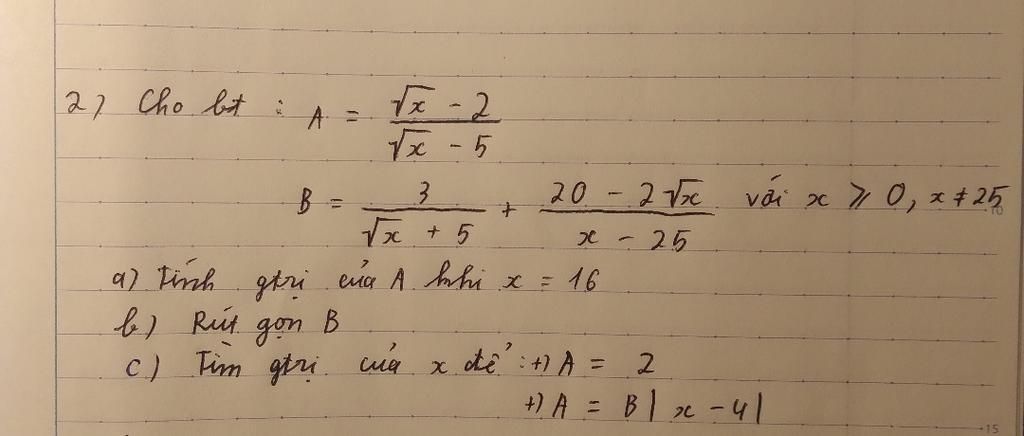 2) Cho bt : A = \frac{\sqrt{x} - 2}{\sqrt{x} - 5}
B = \frac{3}{\sqrt{x} + 5} + \frac{20 - 2\sqrt{x}}{x - 25} với x ⩾ 0, x ≠ 25
a) Tính gtrị của A khi x = 16
b) Rút gọn B
c) Tìm gtrị của x để : +) A = 2
+) A = B | x - 4 |
10
15